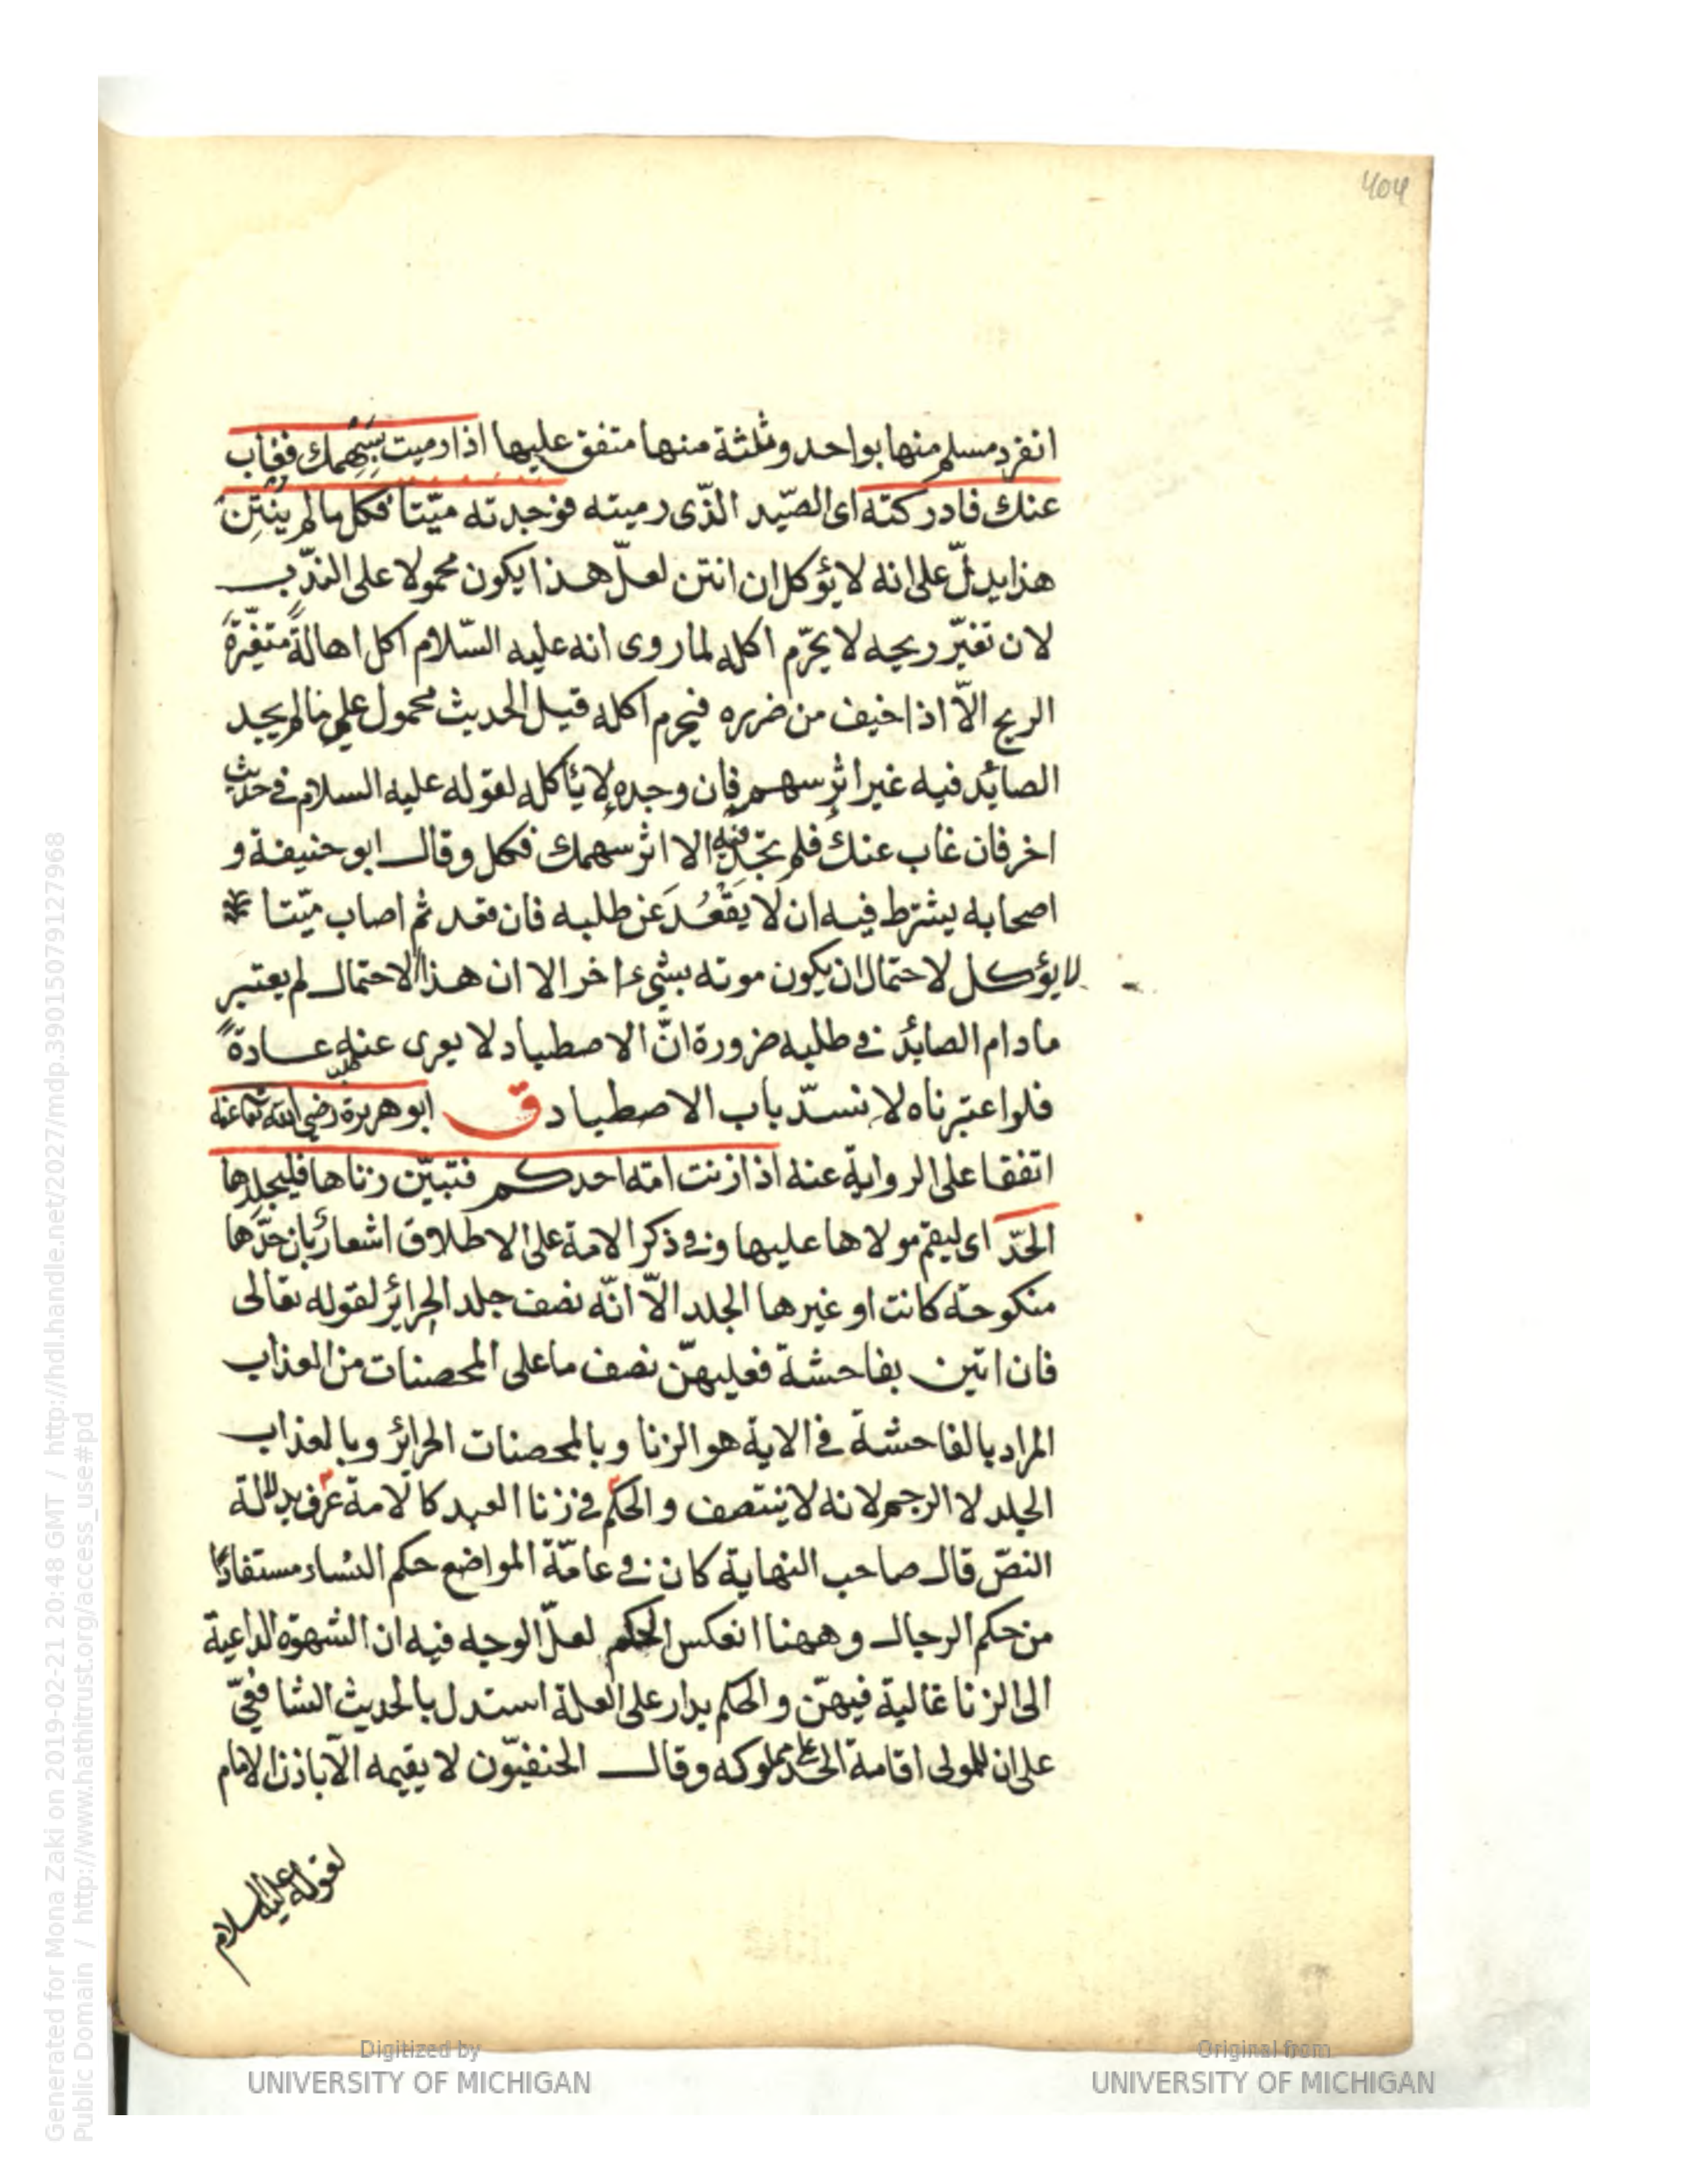 404
انفرد مسلم منها بواحد وثلثة منها متفق عليها اذا رميت بسهمك فغاب
عنك فادركته اى الصّيد الذّى رميته فوجدته ميّتا فكل ما لم ينتن
هذا يدلّ على انه لا يؤكل ان انتن لعلّ هذا يكون محمولا على الندب
لان تغيّر ريحه لا يحرّم اكله لما روى انه عليه السّلام اكل اهالةً متغيّرة
الريح الاّ اذا خيف من ضرره فيحرم اكله قيل الحديث محمول على ما لم يجد
الصائد فيه غير اثر سهم فان وجده لا يأكله لقوله عليه السلام فى حديث
اخر فان غاب عنك فلم تجد فيه الا اثر سهمك فكل وقال ابو حنيفة و
اصحابه يشترط فيه ان لا يقعُدَ عن طلبه فان قعد ثم اصاب ميّتا
لا يؤكل لاحتمال ان يكون موته بشىء اخر الا ان هذا الاحتمال لم يعتبر
ما دام الصائد فى طلبه ضرورة انّ الاصطياد لا يعرى عنه عادةً
فلو اعتبرناه لانسدّ باب الاصطياد ق ابو هريرة رضي الله تعا عنه
اتفقا على الرواية عنه اذا زنت امة احدكم فتبيّن زناها فليجلدها
الحدّ اى ليقم مولاها عليها وفى ذكر الامة على الاطلاق اشعار بان حدّها
منكوحة كانت او غيرها الجلد الاّ انّه نصف جلد الحرائر لقوله تعالى
فان اتين بفاحشة فعليهنّ نصف ما على المحصنات من العذاب
المراد بالفاحشة فى الاية هو الزنا وبالمحصنات الحرائر وبالعذاب
الجلد لا الرجم لانه لا ينتصف والحكم فى زنا العبد كالامة عرف بدلالة
النصّ قال صاحب النهاية كان فى عامّة المواضع حكم النساء مستفادًا
من حكم الرجال وههنا انعكس الحكم لعلّ الوجه فيه ان الشهوة الداعية
الى الزنا غالبة فيهنّ والحكم يدار على العلة استدل بالحديث الشافعيّ
على ان للمولى اقامة الحد على مملوكه وقال الحنفيّون لا يقيمه الاّ باذن الامام
لقوله عليه السلام
Digitized by
UNIVERSITY OF MICHIGAN
Original from
UNIVERSITY OF MICHIGAN
Generated for Mona Zaki on 2019-02-21 20:48 GMT / http://hdl.handle.net/2027/mdp.39015079127968
Public Domain / http://www.hathitrust.org/access_use#pd